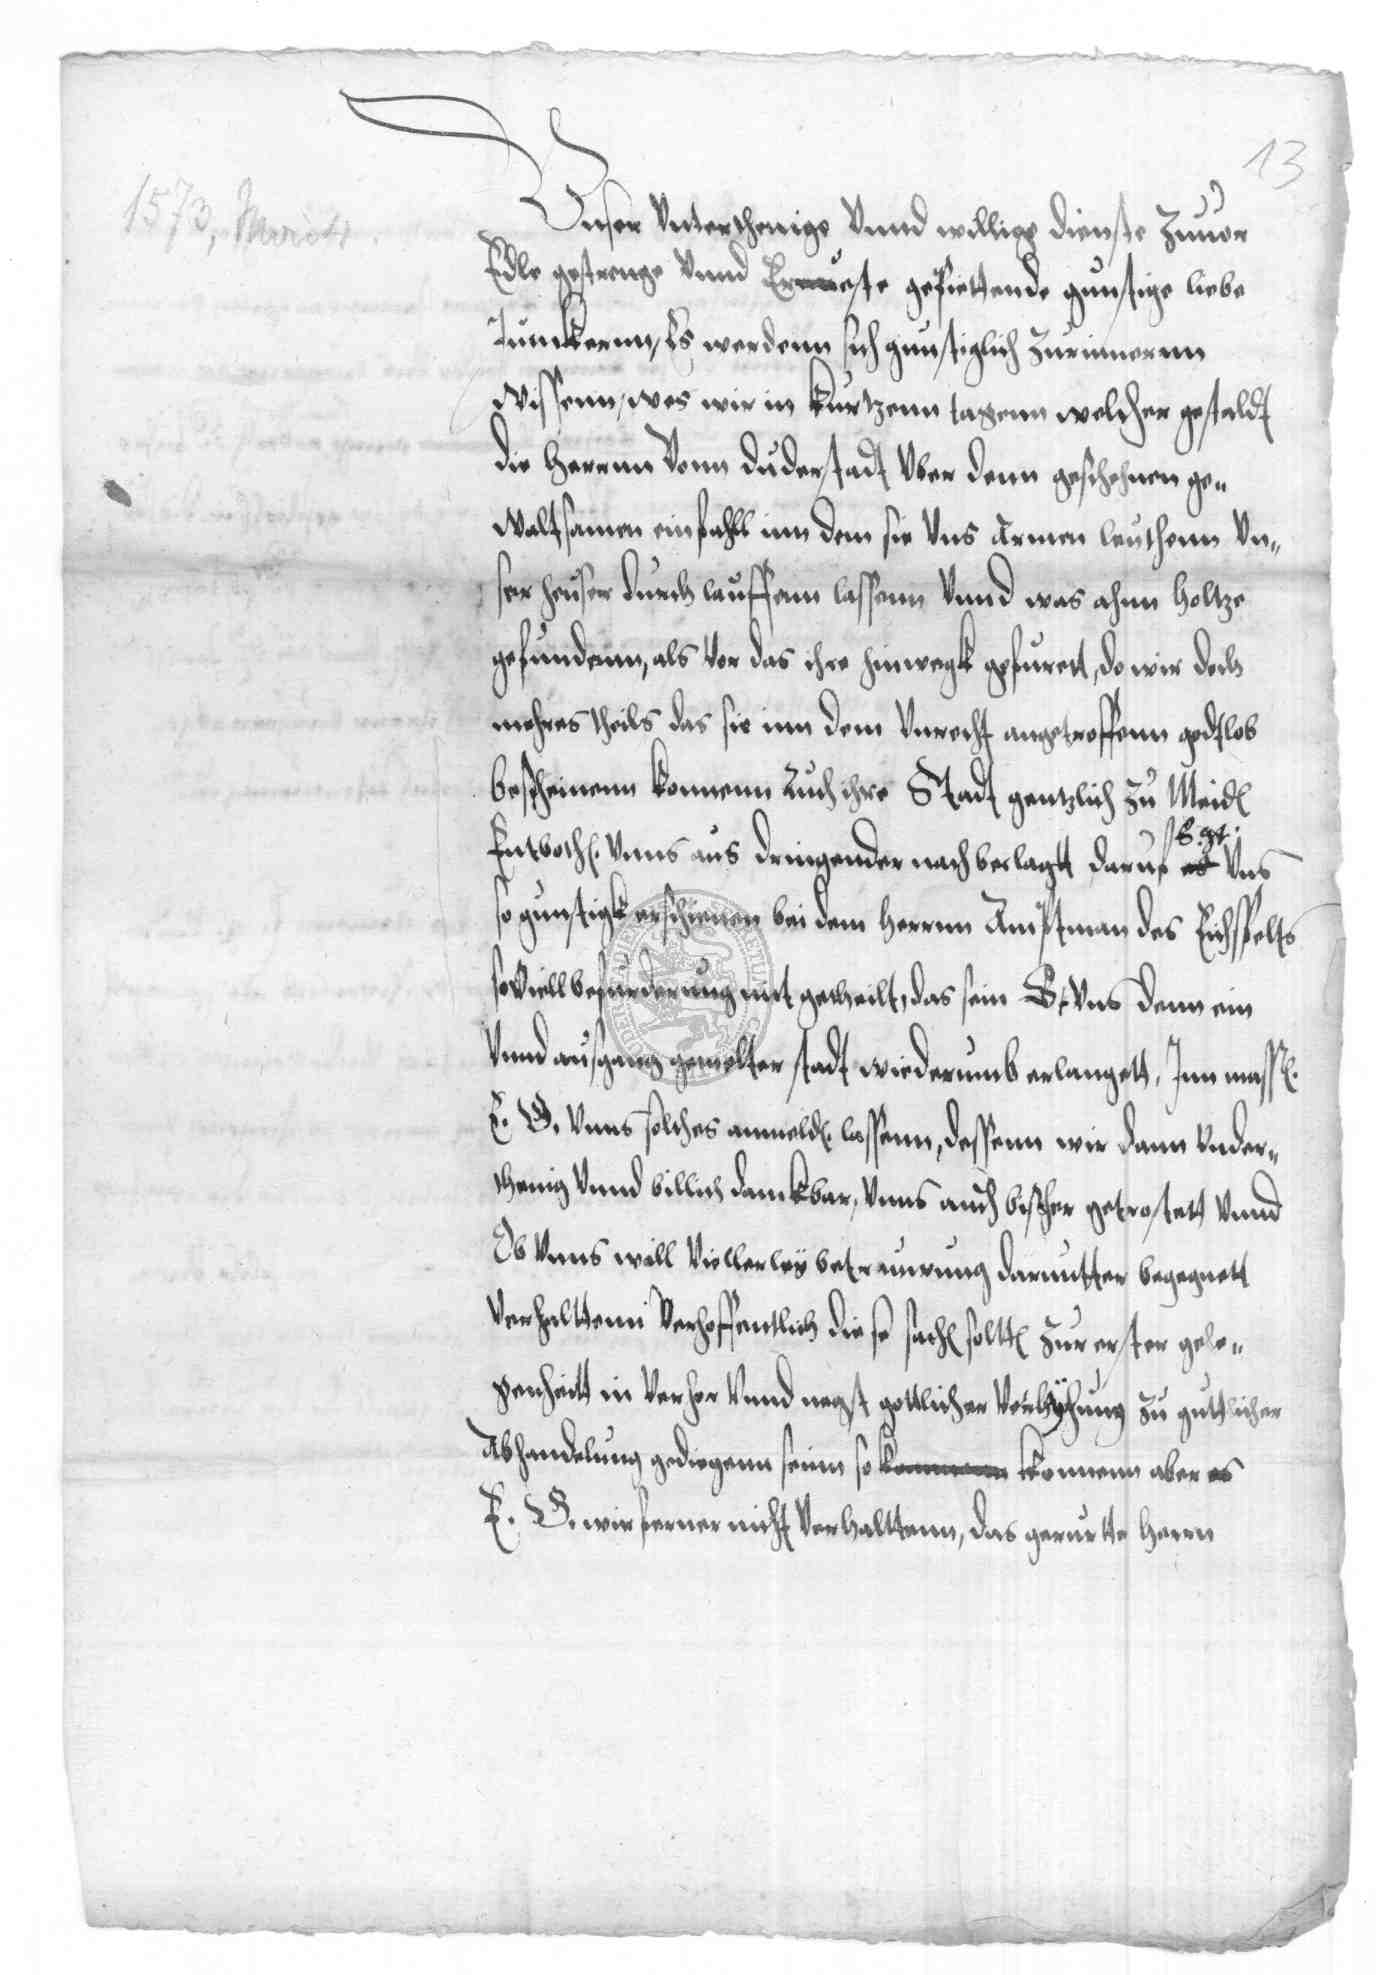 13
1573, März
Unser Unterthenige Unnd willige dienste Zuuor
Edle gestrenge Unnd Ernueste gepiettende gunstige liebe
Junckernn, Es werdenn sich gunstiglich Zurinnernn
wissenn, wes wir in kurtzenn tagenn welcher gestaldt
die Herrnn Vonn duderstadt Uber denn geschehnen ge-
waltsamen einfahll inn dem sie Uns Armen leuthenn Un-
ser heuser durch lauffenn lassenn Unnd was ahnn holtze
gefundenn, als vor das ihre hinwegk gefurett, do wir doch
mehres theils das sie inn dem Unrecht angetroffenn gottlob
bescheinenn konnenn Auch ihre Stadt gentzlich Zu Meid
Unns aus dringender noch beclagtt daruf Uns
so gunstigk erschienen bei dem Herrnn Amptman des Eichsfelts
soviell befurderung mit getheilt, das sein G. Uns denn ein
Unnd ausgang gemelter stadt wiederumb erlangett, Inn mass
E. G. Unns solches anmeld lassenn, dessenn wir dann Under-
thenig Unnd billich danckbar, Unns auch bisher getrostett Unnd
Ob Unns woll Viellerley daruntter begegnett
Verhalttenn Verhoffentlich diese sach soltt Zur erster gele-
genheitt in Verhor Unnd negst gottlicher Verleyhung Zu gutlicher
Abhandelung gediegenn seinn so konnenn aber
E. G. wir ferner nicht Verhalttenn, das gerurtte Herrn